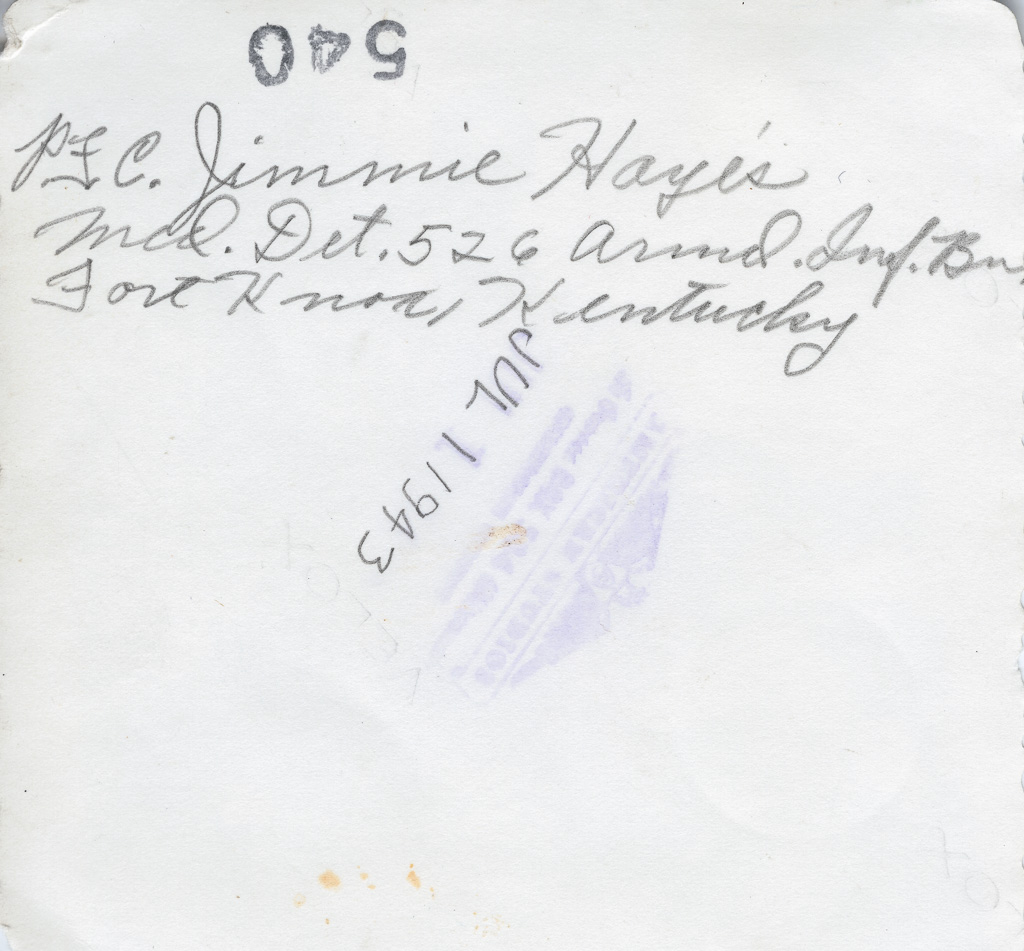 540
P.F.C. Jimmie Haye's
Med. Det. 526 Armd. Inf. Bn.
Fort Knox, Kentucky
JUL 1 1943